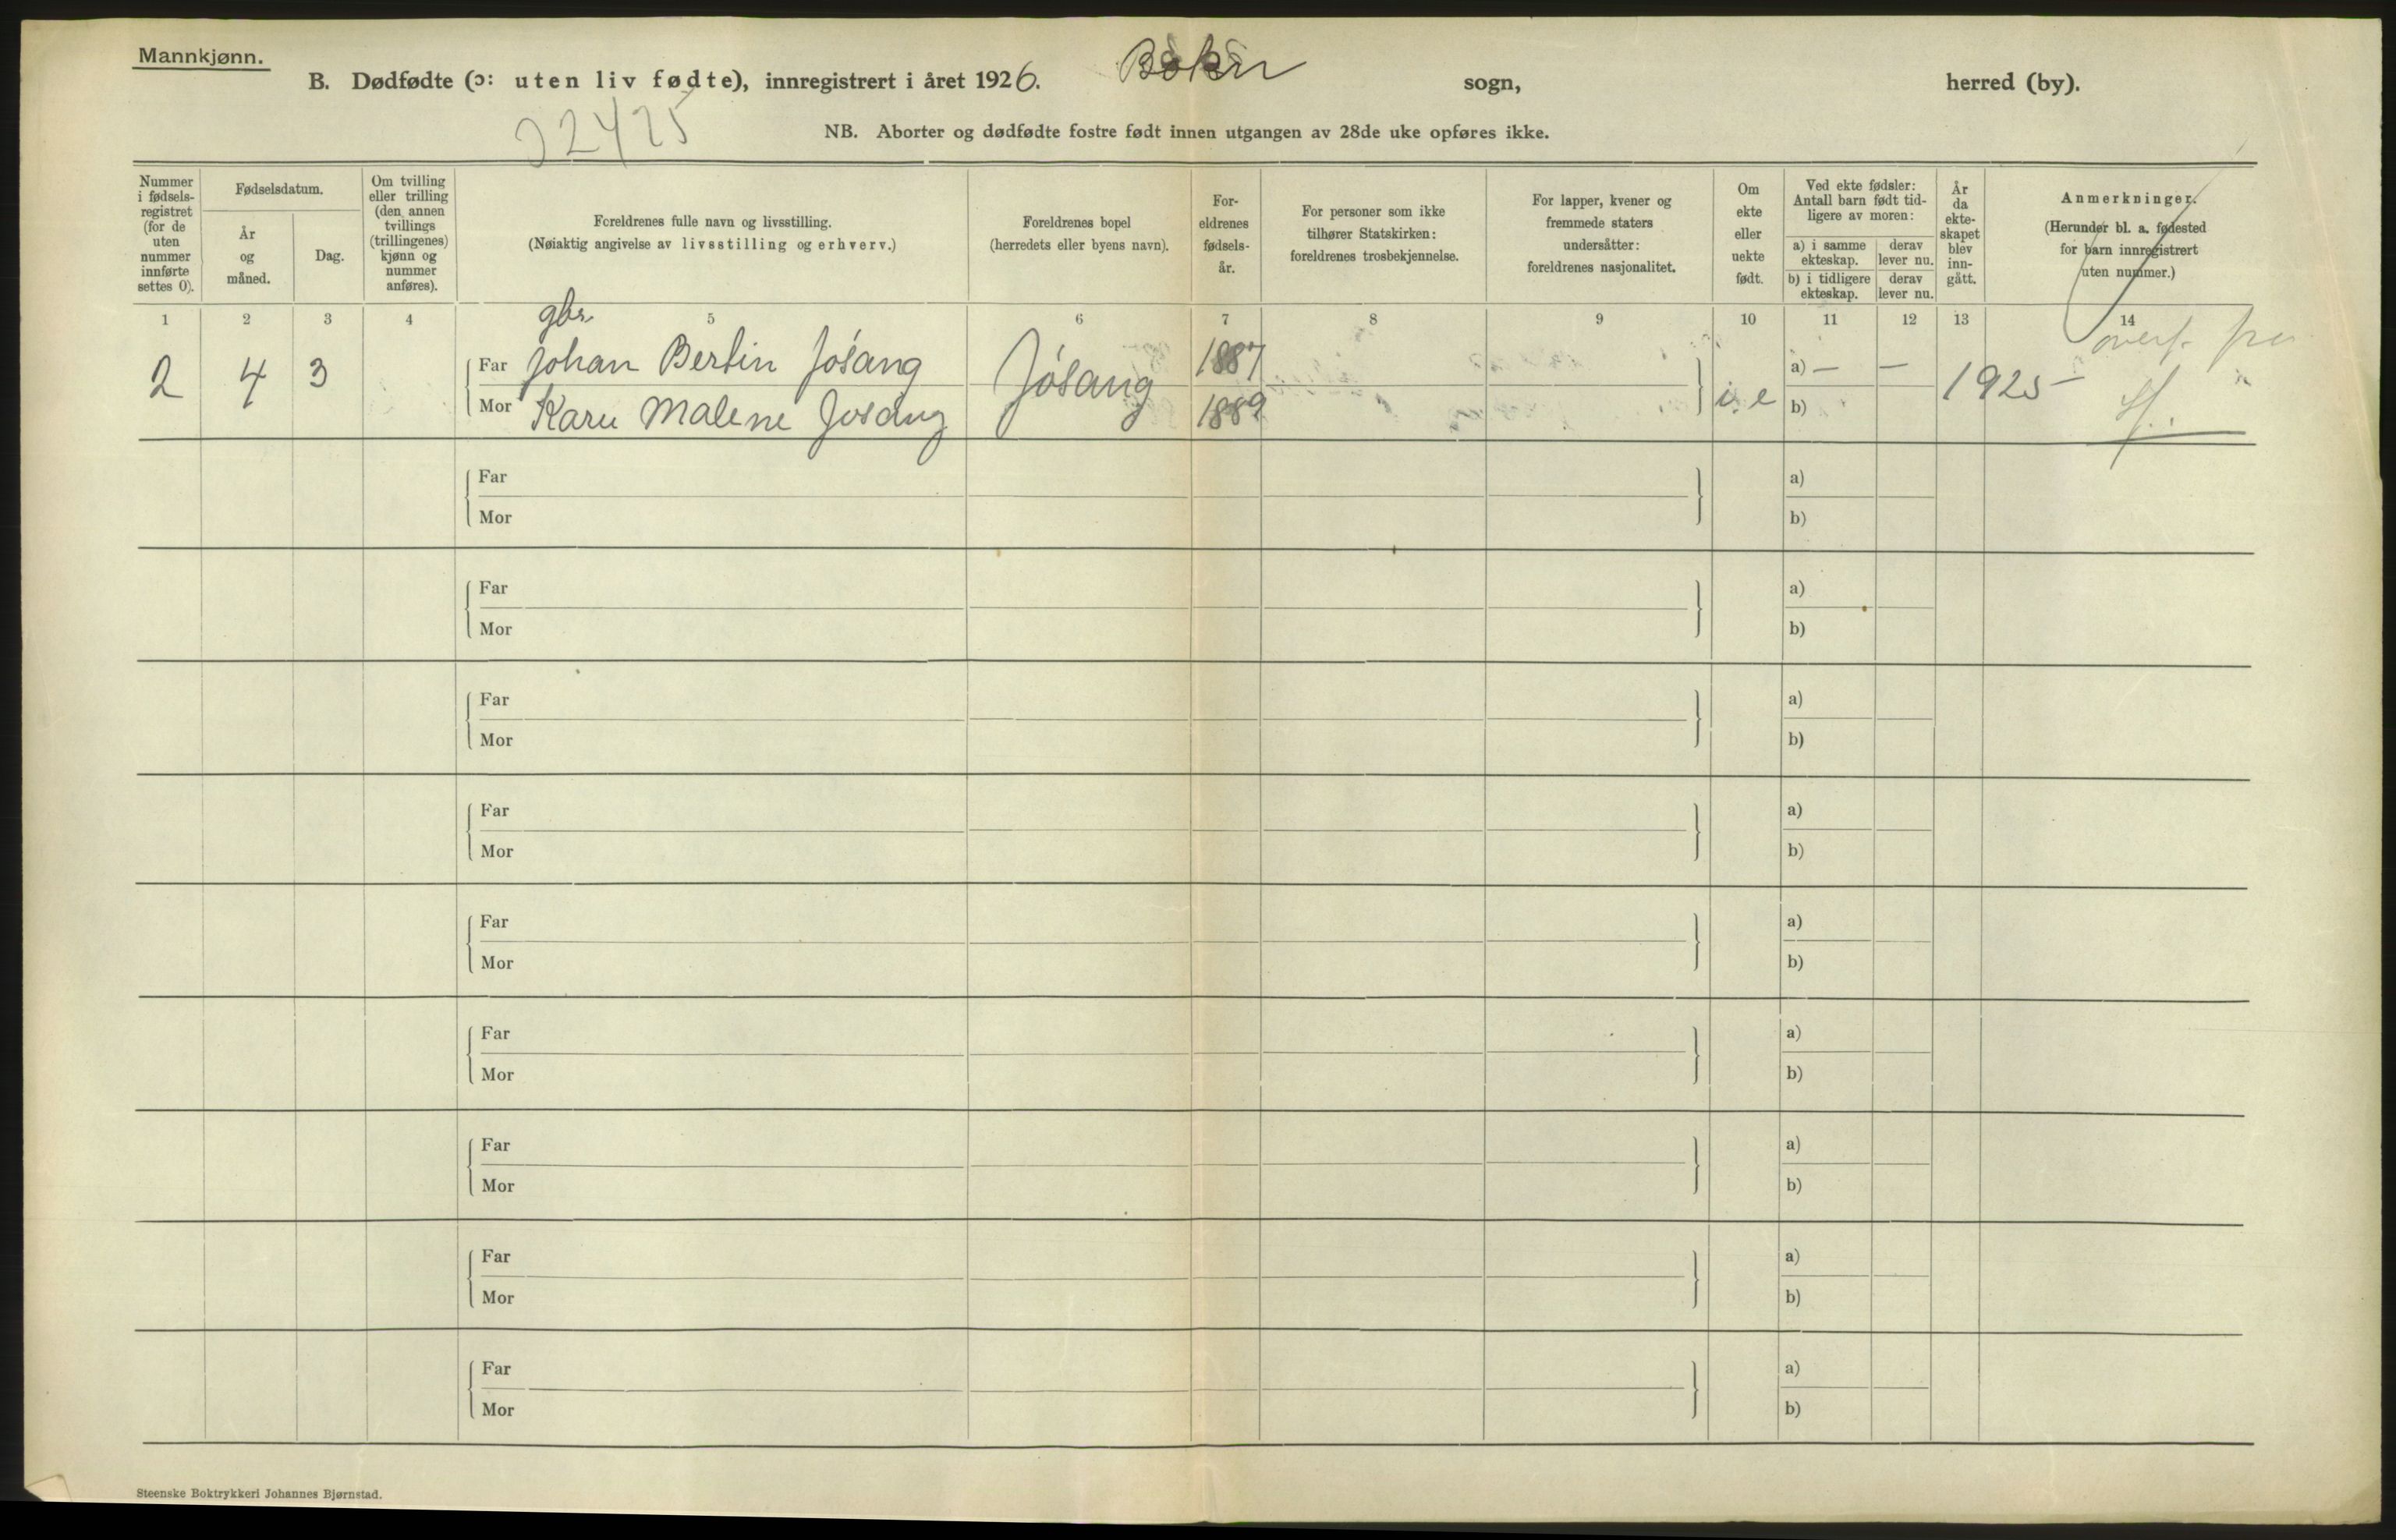 Mannkjønn.
B. Dødfødte (ɔ: uten liv fødte), innregistrert i året 1926. Bokn sogn, herred (by).
NB. Aborter og dødfødte fostre født innen utgangen av 28de uke opføres ikke.
Nummer
i fødsels-
registret
(for de
uten
nummer
innførte
settes 0).
Fødselsdatum.
År
og
måned.
Dag.
Om tvilling
eller trilling
(den annen
tvillings
(trillingenes)
kjønn og
nummer
anføres).
Foreldrenes fulle navn og livsstilling.
(Nøiaktig angivelse av livsstilling og erhverv.)
Foreldrenes bopel
(herredets eller byens navn).
For-
eldrenes
fødsels-
år.
For personer som ikke
tilhører Statskirken:
foreldrenes trosbekjennelse.
For lapper, kvener og
fremmede staters
undersåtter:
foreldrenes nasjonalitet.
Om
ekte
eller
uekte
født.
Ved ekte fødsler:
Antall barn født tid-
ligere av moren:
a) i samme
ekteskap.
derav
lever nu.
b) i tidligere
ekteskap.
derav
lever nu.
År
da
ekte-
skapet
blev
inn-
gått.
Anmerkninger.
(Herunder bl. a. fødested
for barn innregistrert
uten nummer.)
1 2 3 4 5 6 7 8 9 10 11 12 13 14
gbr.
2 4 3 Far Johan Bertin Jósang Jósang 1887 i. e a) — — 1925 overf. fra
Mor Karen Malene Josang 1889 b)
Far a)
Mor b)
Far a)
Mor b)
Far a)
Mor b)
Far a)
Mor b)
Far a)
Mor b)
Far a)
Mor b)
Far a)
Mor b)
Far a)
Mor b)
Far a)
Mor b)
Steenske Boktrykkeri Johannes Bjørnstad.